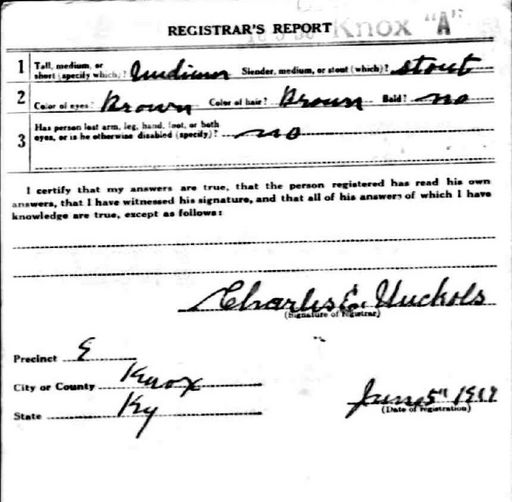 REGISTRAR'S REPORT
Knox "A"
1 Tall, medium, or short (specify which)? Medium Slender, medium, or stout (which)? stout
2 Color of eyes? Brown Color of hair? Brown Bald? no
3 Has person lost arm, leg, hand, foot, or both eyes, or is he otherwise disabled (specify)? no
I certify that my answers are true, that the person registered has read his own
answers, that I have witnessed his signature, and that all of his answers of which I have
knowledge are true, except as follows:
Charles E. Nuckols
(Signature of registrar)
Precinct E
City or County Knox
State Ky
June 5" 1917
(Date of registration)